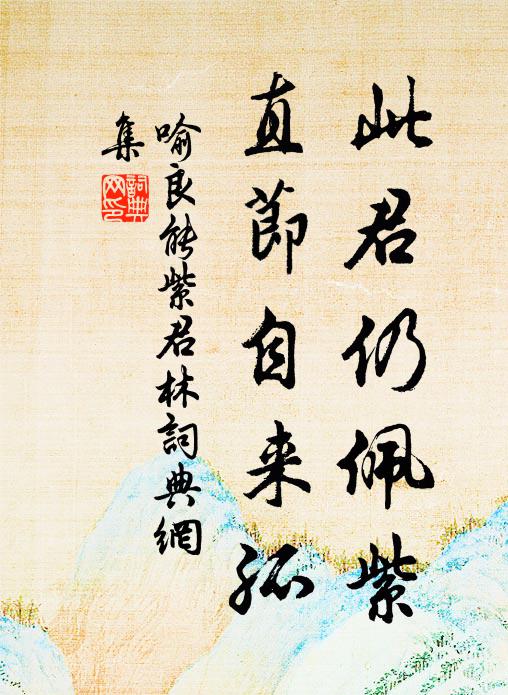 此君仍佩紫
直節自来孤
喻良能紫君林詞典網
集
詞典
网印